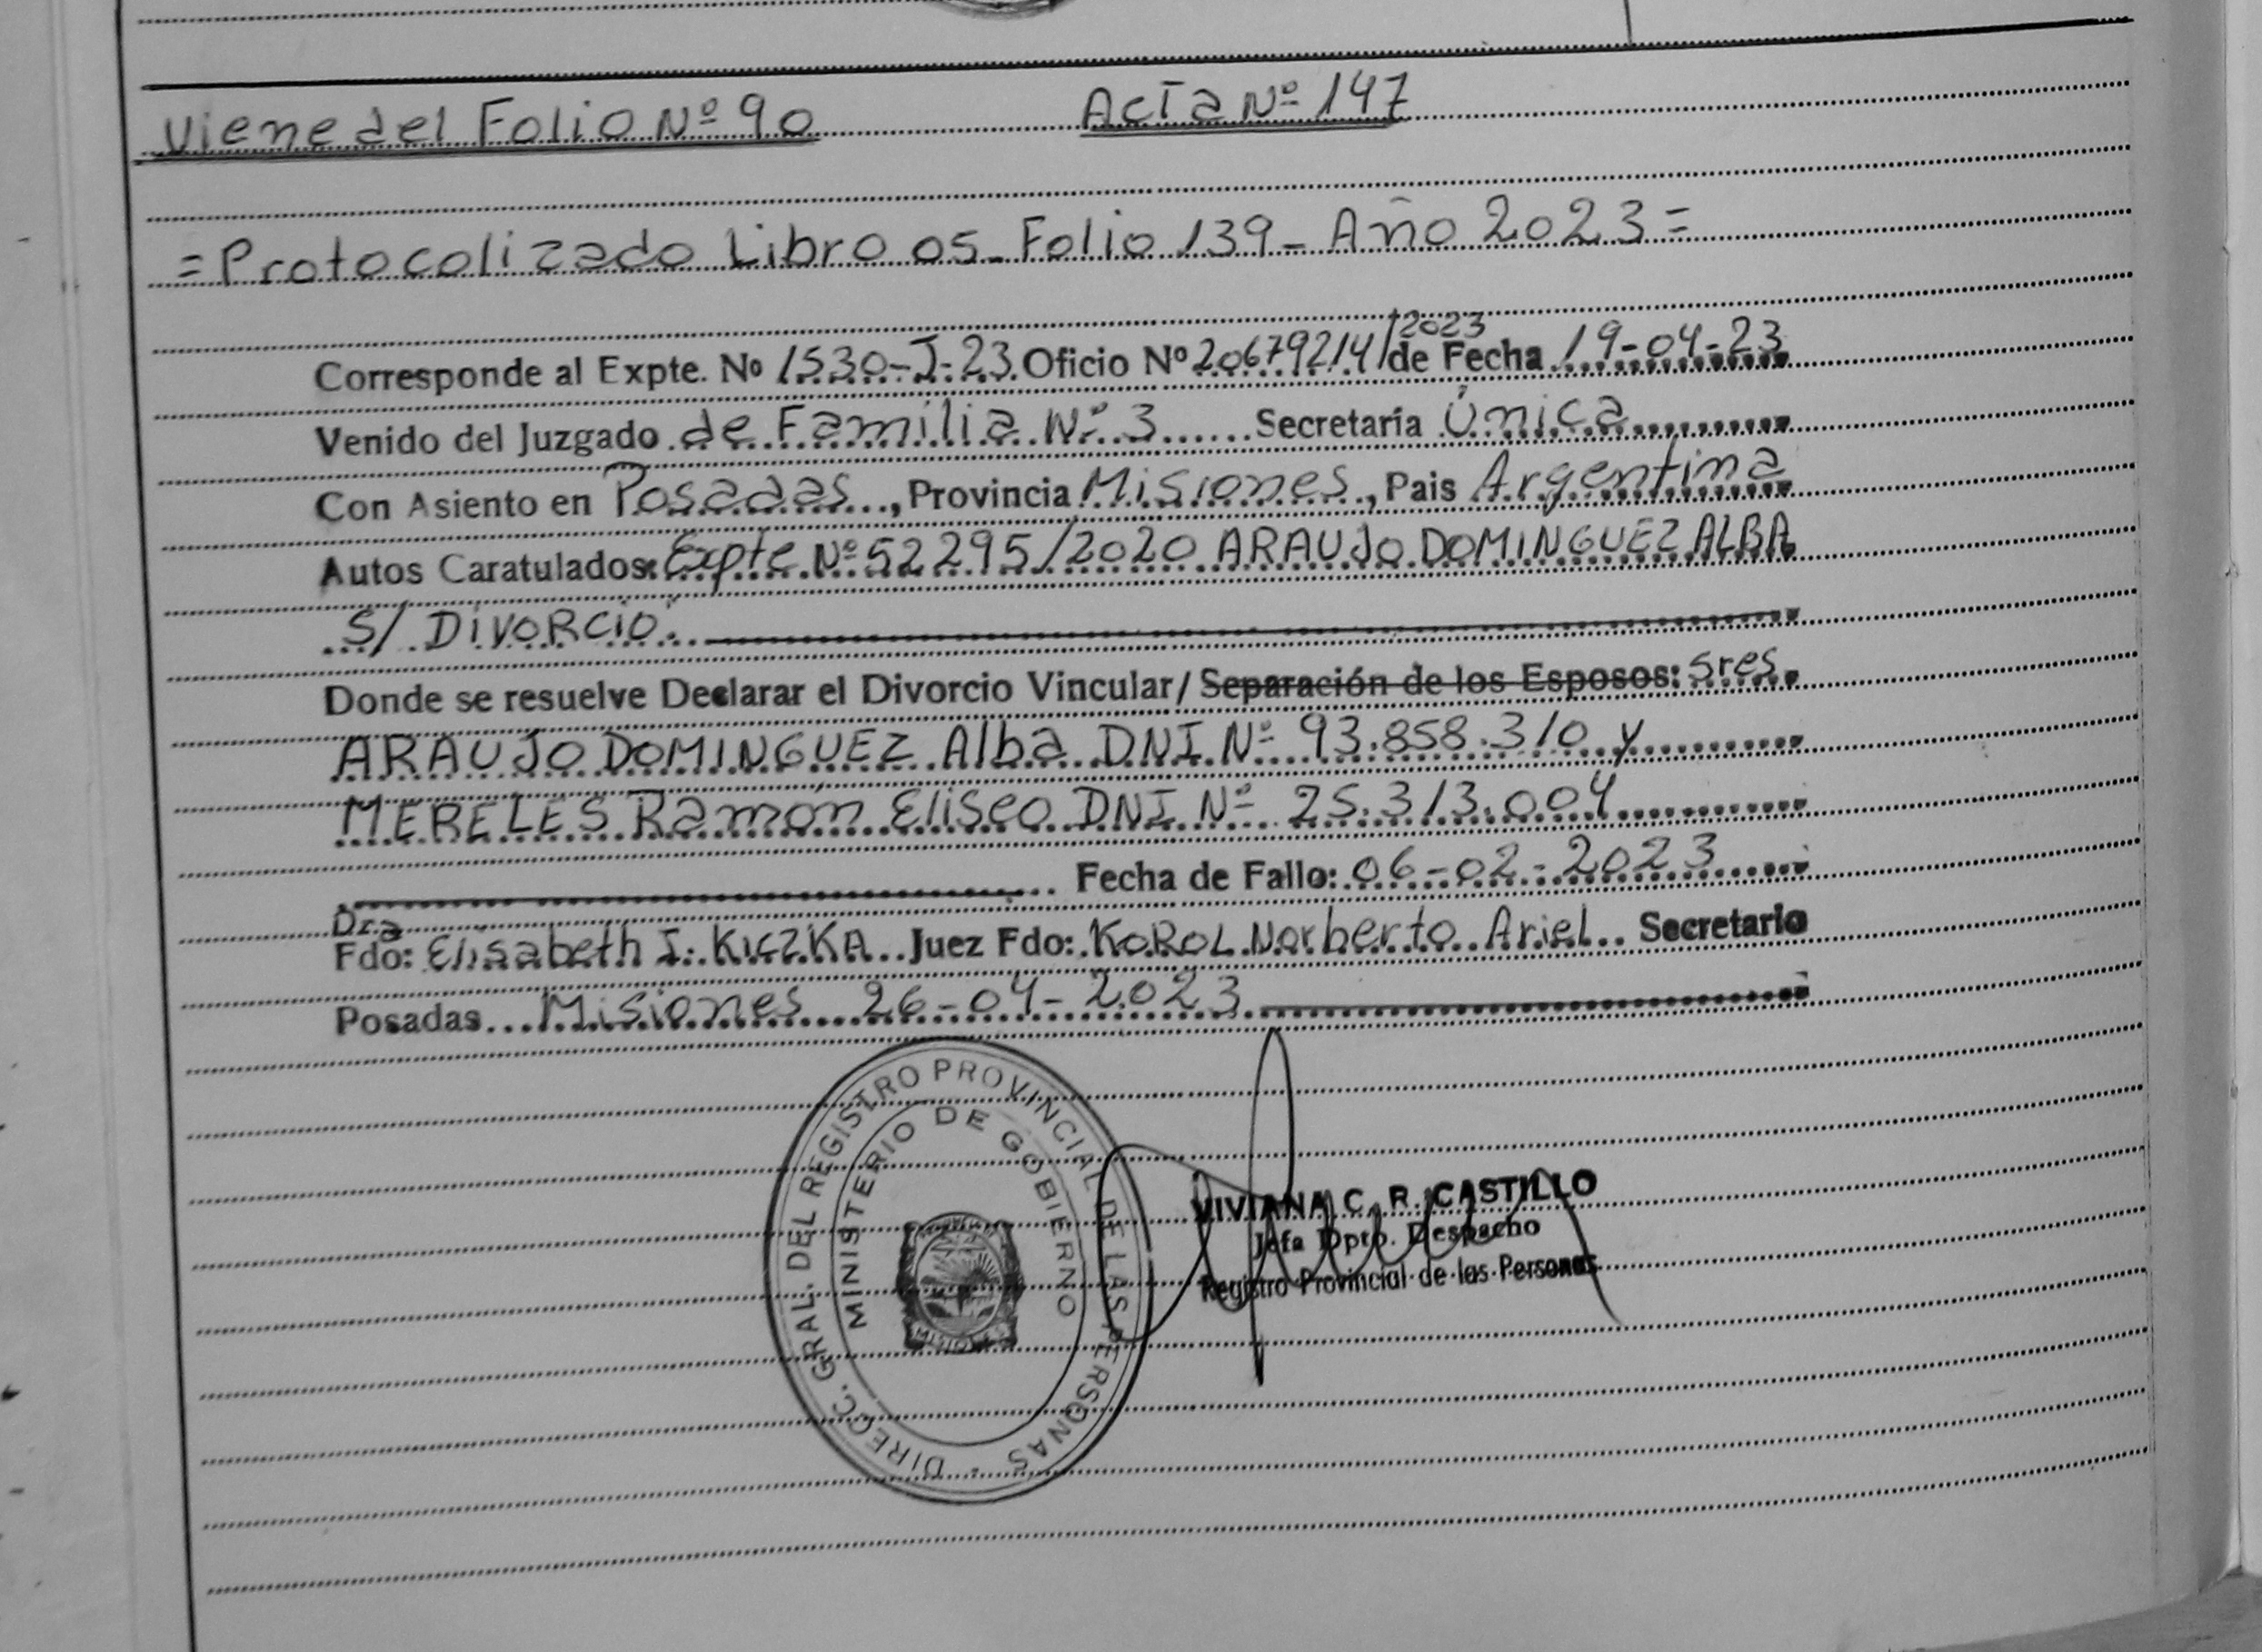 Viene del Folio Nº 90 Acta Nº 147
=Protocolizado Libro 05_ Folio 139_ Año 2023=
Corresponde al Expte. Nº 1530-J-23 Oficio Nº 20679214/2023 de Fecha 19-04-23
Venido del Juzgado de Familia Nº 3 Secretaría Única
Con Asiento en Posadas, Provincia Misiones, Pais Argentina
Autos Caratulados: Expte Nº 52295/2020 ARAUJO DOMINGUEZ ALBA
S/ DIVORCIO.
Donde se resuelve Declarar el Divorcio Vincular/ Separación de los Esposos: Sres.
ARAUJO DOMINGUEZ Alba DNI Nº 93.858.310 y
MERELES Ramón Eliseo DNI Nº 25.313.004
Fecha de Fallo: 06-02-2023
Dra
Fdo: Elisabeth I. KICZKA Juez Fdo: KOROL Norberto Ariel Secretario
Posadas Misiones 26-04-2023
DIRECC. GRAL. DEL REGISTRO PROVINCIAL DE LAS PERSONAS
MINISTERIO DE GOBIERNO
VIVIANA C. R. CASTILLO
Jefa Dpto. Despacho
Registro Provincial de las Personas